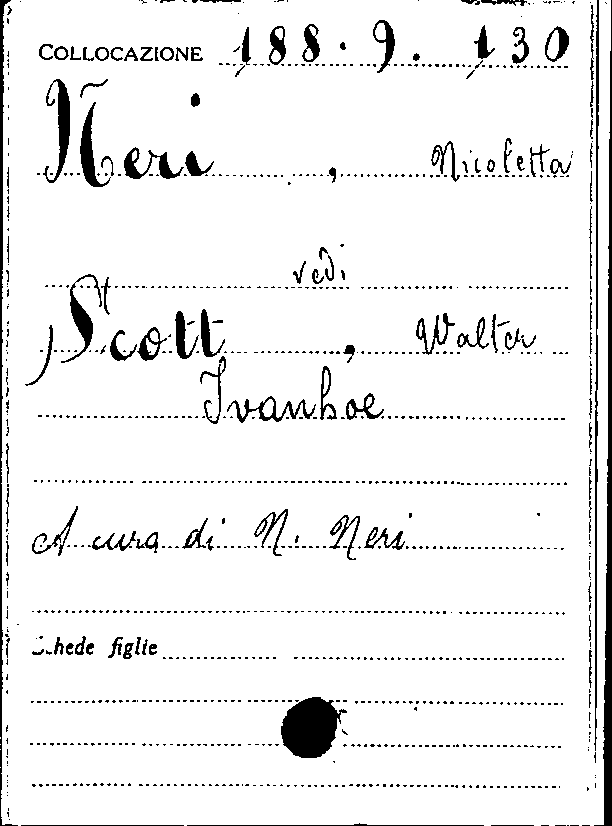 COLLOCAZIONE 188.9.130
Neri, Nicoletta
vedi
Scott, Walter
Ivanhoe
A cura di N. Neri
Schede figlie